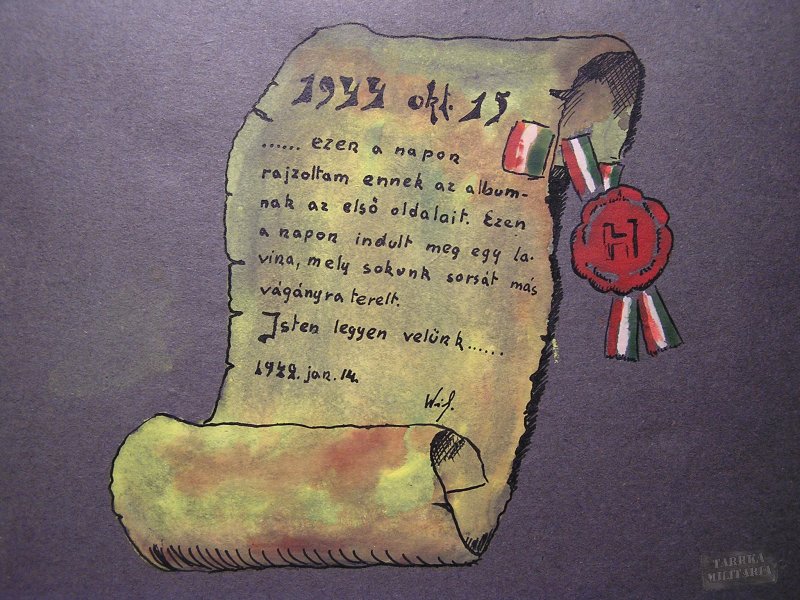 1944 okt. 15
...... ezen a napon
rajzoltam ennek az album-
nak az első oldalait. Ezen
a napon indult meg egy la-
vina, mely sokunk sorsát más
vágányra terelt.
Isten legyen velünk......
1949. jan. 14.
H
TARRKA
MILITARIA